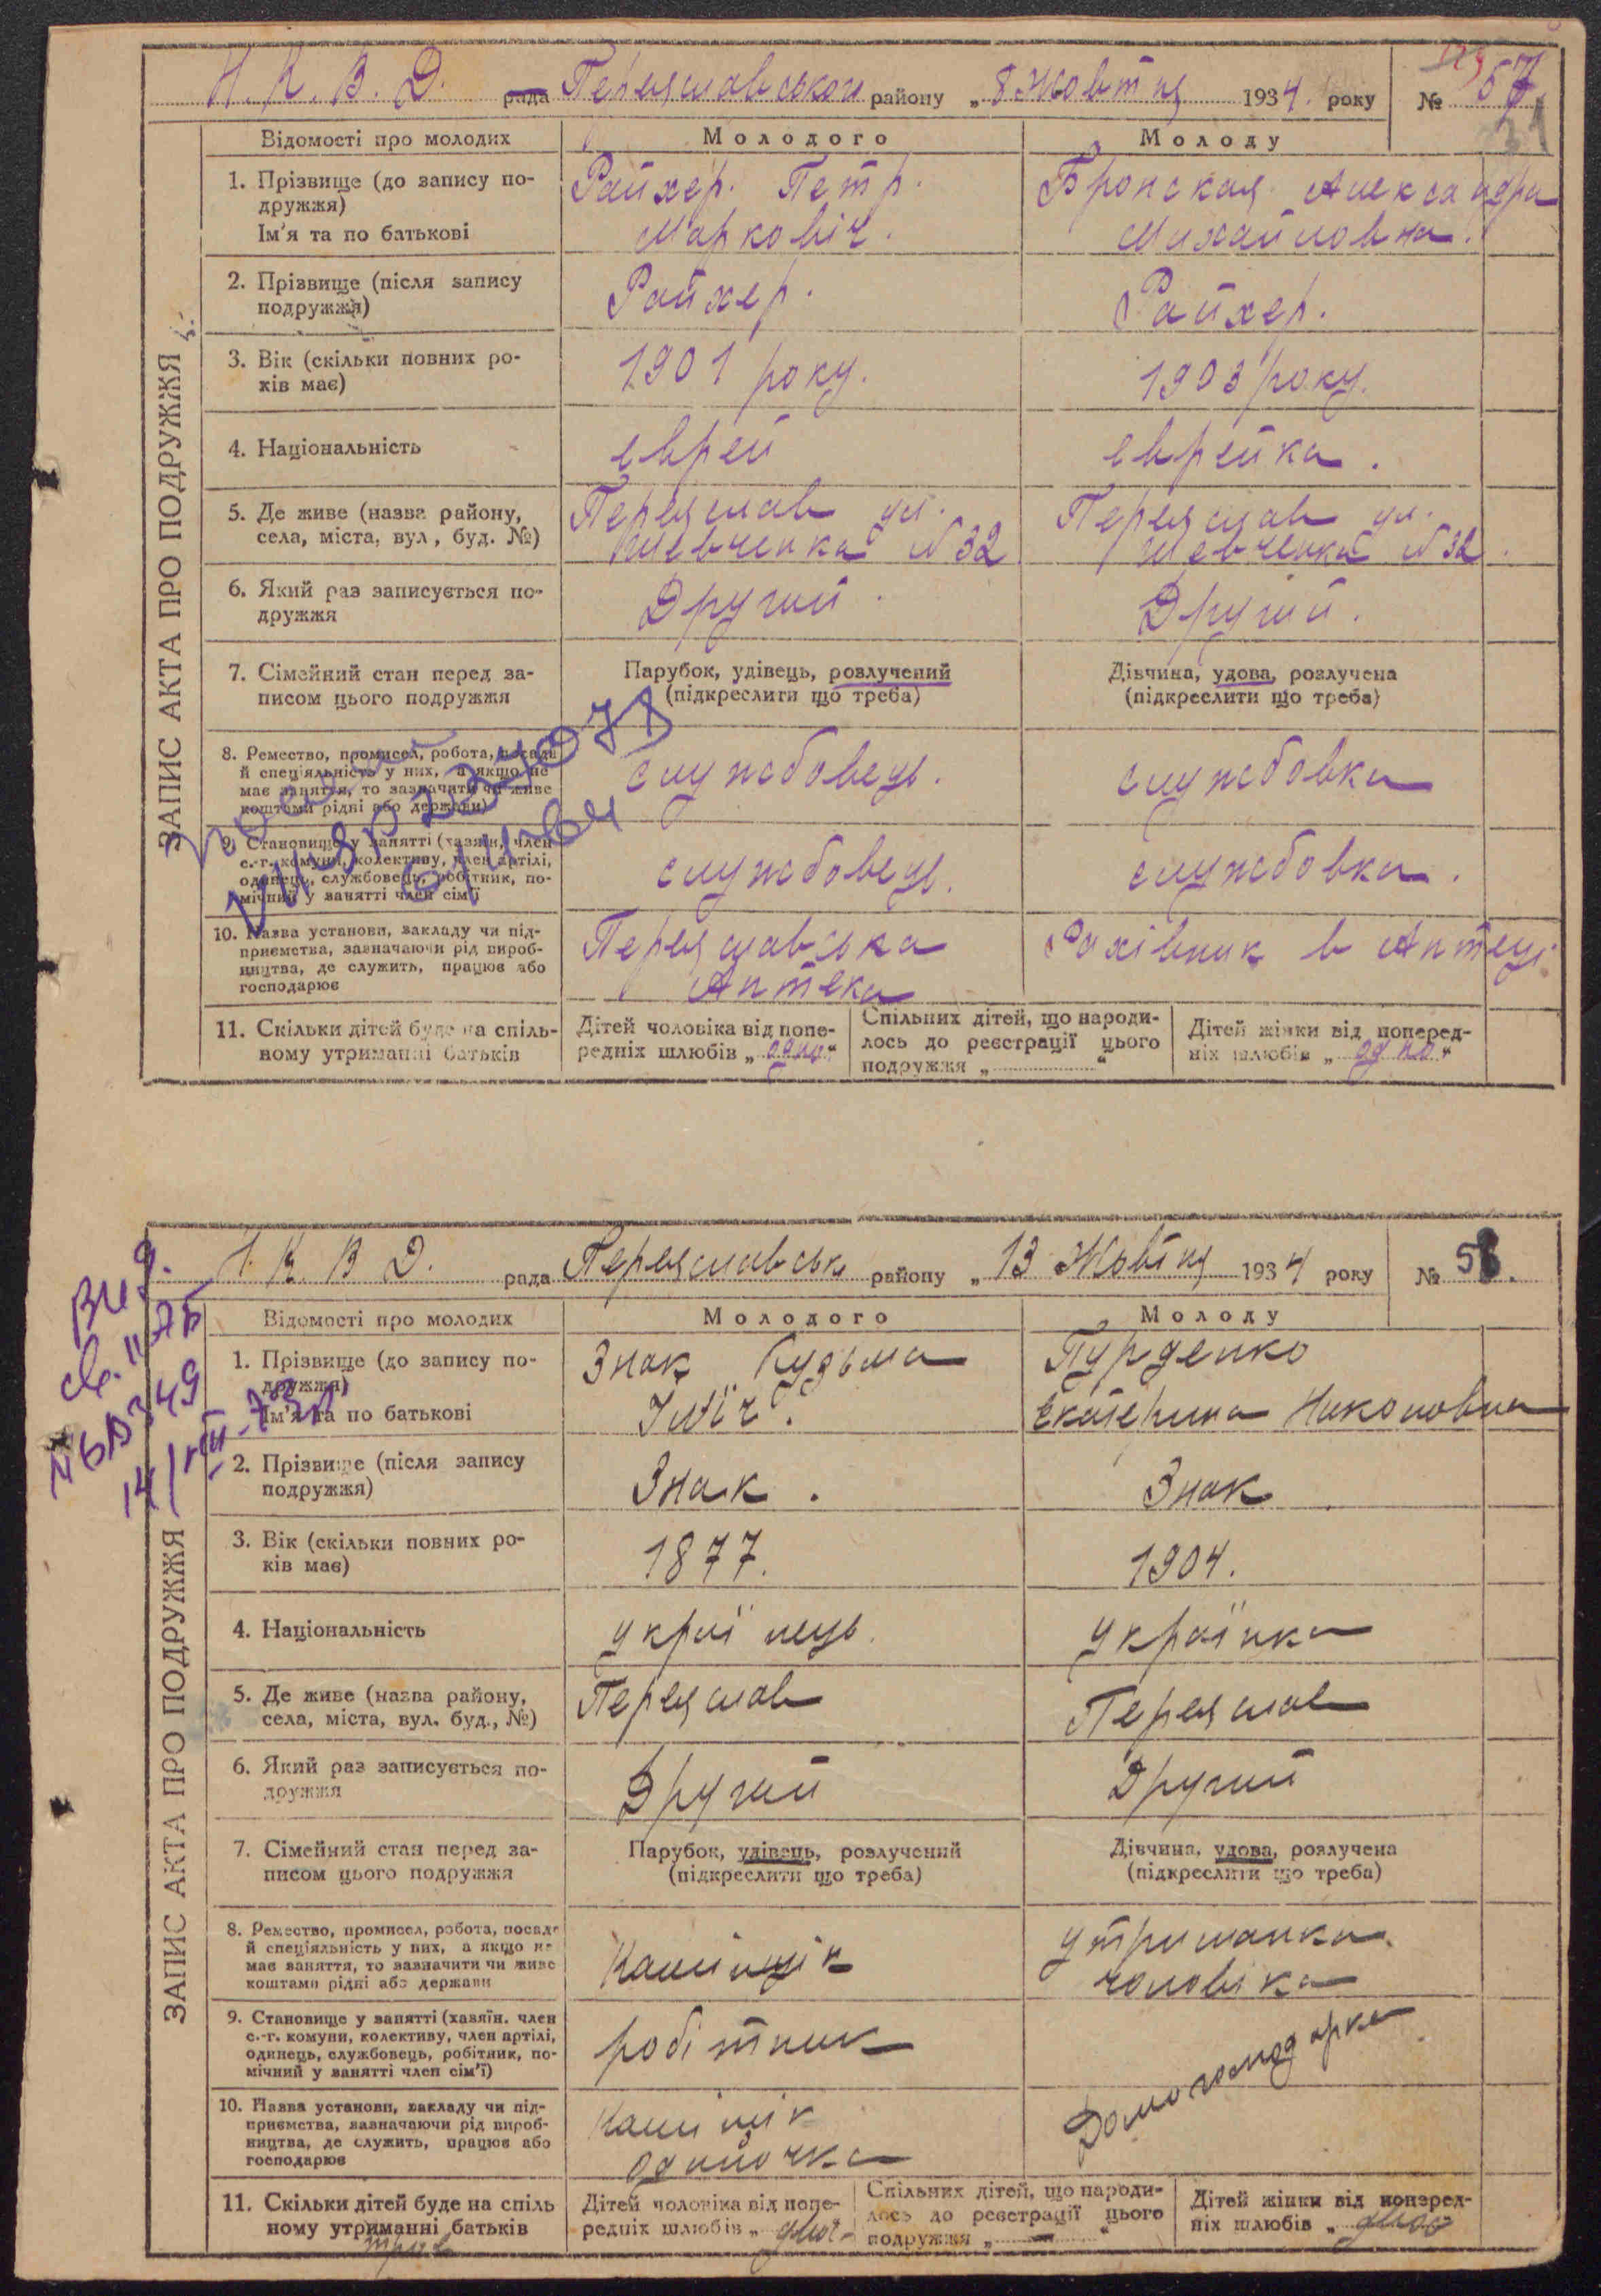 Н. К. В. Д. рада Переяславськои району „ 8 Жовтня 1934. року № 57
31
ЗАПИС АКТА ПРО ПОДРУЖЖЯ
Відомості про молодих Молодого Молоду
1. Прізвище (до запису по-
дружжя)
Ім'я та по батькові
Райхер. Петр.
Маркович.
Бронская Александра
Михайловна.
2. Прізвище (після запису
подружжя)
Райхер.
Райхер.
3. Вік (скільки повних ро-
ків має)
1901 року.
1903 року.
4. Національність
еврей
еврейка.
5. Де живе (назва району,
села, міста, вул, буд. №)
Переяслав ул.
Шевченка N 32
Переяслав ул.
Шевченка N 32.
6. Який раз записується по-
дружжя
Другий.
Другий.
7. Сімейний стан перед за-
писом цього подружжя
Парубок, удівець, розлучений
(підкреслити що треба)
Дівчина, удова, розлучена
(підкреслити що треба)
8. Ремество, промисел, робота, посада
й спеціяльність у них, а якщо не
має заняття, то зазначити чи живе
коштами рідні або держави)
службовець.
службовка
9. Становище у занятті (хазяїн, член
с.-г. комуни, колективу, член артілі,
одинець, службовець, робітник, по-
мічний у занятті член сім'ї
службовець.
службовка.
10. Назва установи, закладу чи під-
приємства, зазначаючи рід вироб-
ництва, де служить, працює або
господарює
Переяславська
Аптека
Рахівник в Аптеці
11. Скільки дітей буде на спіль-
ному утриманні батьків
Дітей чоловіка від попе-
редніх шлюбів „ одно “
Спільних дітей, що народи-
лось до реєстрації цього
подружжя „ “
Дітей жінки від поперед-
ніх шлюбів „ одно “
Н. К. В Д. рада Переяславськ району „ 13 Жовтня 1934 року № 58.
Вид.
св. II АБ
14/VIII-73р
ЗАПИС АКТА ПРО ПОДРУЖЖЯ
Відомості про молодих Молодого Молоду
1. Прізвище (до запису по-
дружжя)
Ім'я та по батькові
Знак Кузьма
Пурденко
Екатерина Никоновна
2. Прізвище (після запису
подружжя)
Знак.
Знак
3. Вік (скільки повних ро-
ків має)
1877.
1904.
4. Національність
українець.
українка
5. Де живе (назва району,
села, міста, вул. буд., №)
Переяслав
Переяслав
6. Який раз записується по-
дружжя
Другий
Другий
7. Сімейний стан перед за-
писом цього подружжя
Парубок, удівець, розлучений
(підкреслити що треба)
Дівчина, удова, розлучена
(підкреслити що треба)
8. Ремество, промисел, робота, посада
й спеціяльність у них, а якщо не
має заняття, то зазначити чи живе
коштами рідні або держави
утриманка
чоловіка
9. Становище у занятті (хазяїн. член
с.-г. комуни, колективу, член артілі,
одинець, службовець, робітник, по-
мічний у занятті член сім'ї)
робітник
Домогосподарка
10. Назва установи, закладу чи під-
приємства, зазначаючи рід вироб-
ництва, де служить, працює або
господарює
одиночка
11. Скільки дітей буде на спіль
ному утриманні батьків
Дітей чоловіка від попе-
редніх шлюбів „
Спільних дітей, що народи-
лось до реєстрації цього
подружжя „ — “
Дітей жінки від поперед-
ніх шлюбів „ двоє